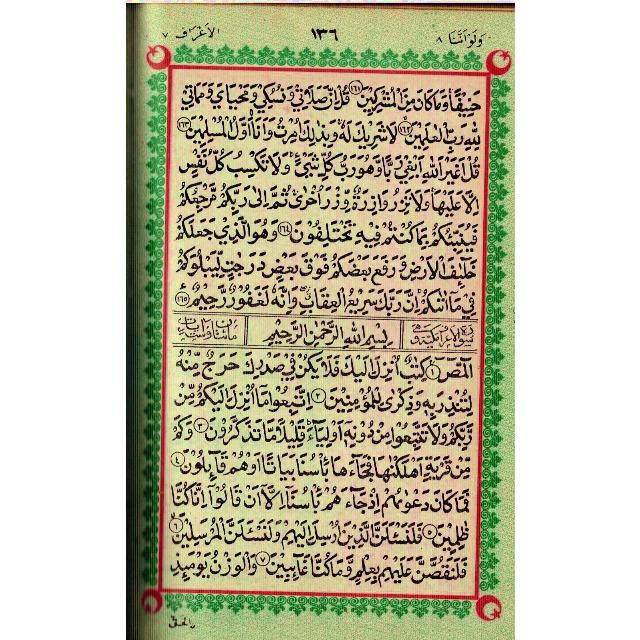 وَلَوْ اَنَّنَا ٨ ١٣٦ الْاَعْرَاف ٧
حَنِيْفًا وَمَا كَانَ مِنَ الْمُشْرِكِيْنَ ١٦١ قُلْ اِنَّ صَلَاتِيْ وَنُسُكِيْ وَمَحْيَايَ وَمَمَاتِيْ
لِلّٰهِ رَبِّ الْعٰلَمِيْنَ ١٦٢ لَا شَرِيْكَ لَهٗ وَبِذٰلِكَ اُمِرْتُ وَاَنَا اَوَّلُ الْمُسْلِمِيْنَ ١٦٣
قُلْ اَغَيْرَ اللّٰهِ اَبْغِيْ رَبًّا وَهُوَ رَبُّ كُلِّ شَيْءٍ وَلَا تَكْسِبُ كُلُّ نَفْسٍ
اِلَّا عَلَيْهَا وَلَا تَزِرُ وَازِرَةٌ وِّزْرَ اُخْرٰى ثُمَّ اِلٰى رَبِّكُمْ مَّرْجِعُكُمْ
فَيُنَبِّئُكُمْ بِمَا كُنْتُمْ فِيْهِ تَخْتَلِفُوْنَ ١٦٤ وَهُوَ الَّذِيْ جَعَلَكُمْ
خَلٰٓئِفَ الْاَرْضِ وَرَفَعَ بَعْضَكُمْ فَوْقَ بَعْضٍ دَرَجٰتٍ لِّيَبْلُوَكُمْ
فِيْ مَا اٰتٰىكُمْ اِنَّ رَبَّكَ سَرِيْعُ الْعِقَابِ وَاِنَّهٗ لَغَفُوْرٌ رَّحِيْمٌ ١٦٥
بِسْمِ اللّٰهِ الرَّحْمٰنِ الرَّحِيْمِ
الٓمّٓصٓ ١ كِتٰبٌ اُنْزِلَ اِلَيْكَ فَلَا يَكُنْ فِيْ صَدْرِكَ حَرَجٌ مِّنْهُ
لِتُنْذِرَ بِهٖ وَذِكْرٰى لِلْمُؤْمِنِيْنَ ٢ اِتَّبِعُوْا مَا اُنْزِلَ اِلَيْكُمْ مِّنْ
رَّبِّكُمْ وَلَا تَتَّبِعُوْا مِنْ دُوْنِهٖ اَوْلِيَآءَ قَلِيْلًا مَّا تَذَكَّرُوْنَ ٣ وَكَمْ
مِّنْ قَرْيَةٍ اَهْلَكْنٰهَا فَجَآءَهَا بَاْسُنَا بَيَاتًا اَوْ هُمْ قَآئِلُوْنَ ٤
فَمَا كَانَ دَعْوٰىهُمْ اِذْ جَآءَهُمْ بَاْسُنَا اِلَّا اَنْ قَالُوْا اِنَّا كُنَّا
ظٰلِمِيْنَ ٥ فَلَنَسْئَلَنَّ الَّذِيْنَ اُرْسِلَ اِلَيْهِمْ وَلَنَسْئَلَنَّ الْمُرْسَلِيْنَ ٦
فَلَنَقُصَّنَّ عَلَيْهِمْ بِعِلْمٍ وَّمَا كُنَّا غَآئِبِيْنَ ٧ وَالْوَزْنُ يَوْمَئِذٍ
الْحَقُّ